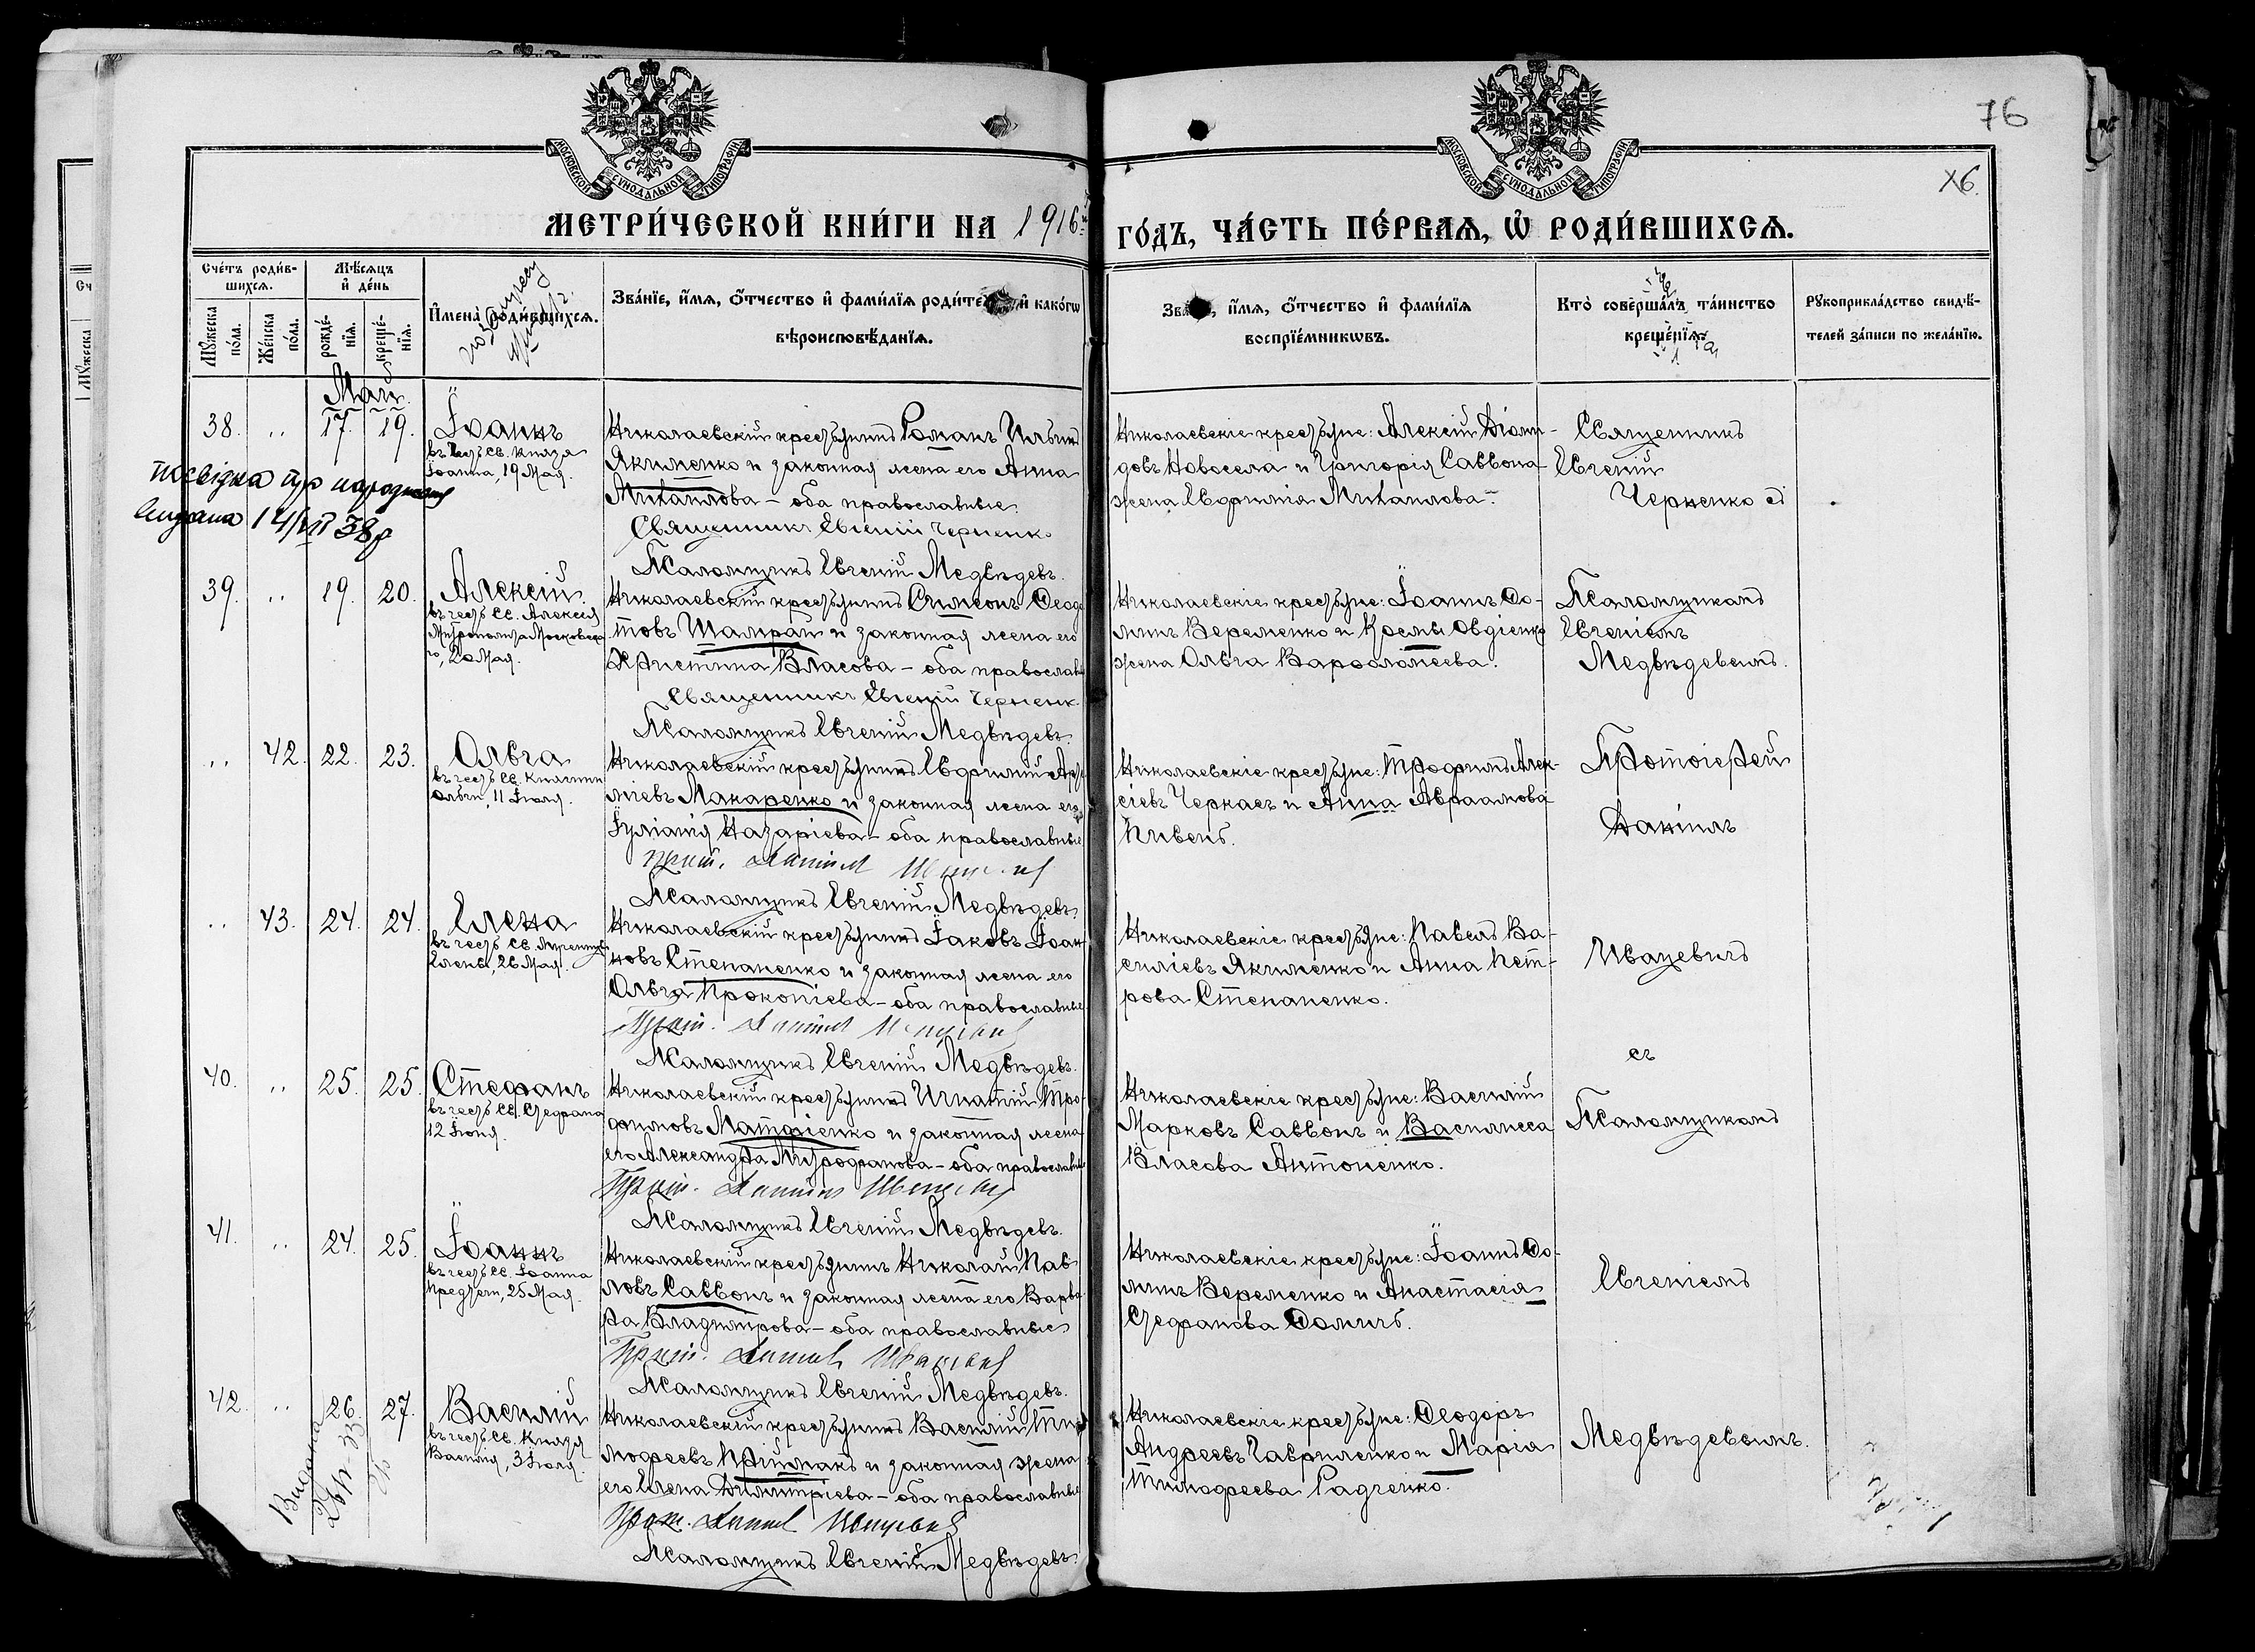 76
76.
МОСКОВСКОЙ СѴНОДАЛЬНОЙ ТИПОГРАФІИ
МОСКОВСКОЙ СѴНОДАЛЬНОЙ ТИПОГРАФІИ
МЕТРИ́ЧЕСКОЙ КНИ́ГИ НА 1916й
ГО́ДЪ, ЧА́СТЬ ПЕ́РВАѦ, Ѡ҆ РОДИ́ВШИХСѦ.
Сче́тъ роди́в-
шихсѧ.
Мꙋжеска
по́ла.
Же́нска
по́ла.
Мѣ́сѧцъ
и҆ де́нь
рожде́-
нїѧ.
креще́-
нїѧ.
И҆мена̀ роди́вшихсѧ.
Зва́нїе, и҆́мѧ, ѻ҆́тчество и҆ фами́лїѧ роди́те и҆ како́гѡ
вѣроисповѣ́данїѧ.
Зва , и҆́мѧ, ѻ҆́тчество и҆ фами́лїѧ
воспрїе́мникѡвъ.
Кто̀ соверша́лъ та́инство
креще́нїѧ.
Рꙋкоприкла́дство свидѣ́-
телей за́писи по жела́нїю.
Май.
38. „ 17. 19. Іоаннъ
въ честь св. Князя
Іоанна, 19 Мая.
Николаевскій крестьянинъ Романъ Ильинъ
Якименко и законная жена его Анна
Михаилова – оба православные
Священникъ Евгеній Черненко
Псаломщикъ Евгеній Медвѣдевъ.
Николаевскіе крестьяне: Алексій Діоми-
довъ Новосела и Григорія Саввона
жена Евфимія Михаилова.
Священникъ
Евгеній
Черненко съ
посвідка про народження
видана 14/VII 38р
39. „ 19. 20. Алексій
въ честь св. Алексія
Митрополита Московска
го, 20 Мая.
Николаевскій крестьянинъ Симеонъ Ѳеодо
товъ Шамрай и законная жена его
Христина Власова – оба православн
Священникъ Евгеній Черненк
Псаломщикъ Евгеній Медвѣдевъ.
Николаевскіе крестьяне: Іоаннъ Ѳо-
минъ Веременко и Космы Овдіенко
жена Ольга Варѳоломеева.
Псаломщикомъ
Евгеніемъ
Медвѣдевымъ.
„ 42. 22. 23. Ольга
въ честь св. Княгини
Ольги, 11 Іюля.
Николаевскій крестьянинъ Евфимій
Макаренко и законная жена его
Іуліанія Назаріева – оба православные
Прот. Даніил Иващевич
Псаломщикъ Евгеній Медвѣдевъ.
Николаевскіе крестьяне: Трофимъ Алек-
сіевъ Черкасъ и Анна Авраамова
Кивень.
Протоіерей
Даніилъ
„ 43. 24. 24. Елена
въ честь св.
Елены, 26 Мая.
Николаевскій крестьянинъ Іаковъ Іоан-
новъ Степаненко и законная жена его
Ольга Прокопіева – оба православные
Прот. Даніил
Псаломщикъ Евгеній Медвѣдевъ.
Николаевскіе крестьяне: Павелъ Ва-
силіевъ Якименко и Анна Пет-
рова Степаненко.
съ
40. „ 25. 25. Стефанъ
въ честь св. Стефана
12 Іюня.
Николаевскій крестьянинъ Игнатій Тро-
фимовъ Матфіенко и законная жена
его Александра Митрофанова – оба православн
Прот. Даніил
Псаломщикъ Евгеній Медвѣдевъ.
Николаевскіе крестьяне: Василій
Марковъ Саввонъ и Василисса
Власова Антоненко.
Псаломщикомъ
41. „ 24. 25. Іоаннъ
въ честь св. Іоанна
Предтечи, 25 Мая.
Николаевскій крестьянинъ Николай Пав-
ловъ Саввонъ и законная жена его Варва
ра Владимірова – оба православные
Прот. Даніил
Псаломщикъ Евгеній Медвѣдевъ.
Николаевскіе крестьяне: Іоаннъ Ѳо-
минъ Веременко и Анастасія
Стефанова Ѳомичъ.
Евгеніемъ
42. „ 26. 27. Василій
въ честь св. Князя
Василія, 3 Іюля.
Николаевскій крестьянинъ Василій Ти
мофеевъ Пріймакъ и законная жена
его Елена Димитріева – оба православные
Прот. Даніил
Псаломщикъ Евгеній Медвѣдевъ.
Николаевскіе крестьяне: Ѳеодоръ
Андреевъ Гавриленко и Марія
Тимофеева Радченко.
Медвѣдевымъ.
Видана